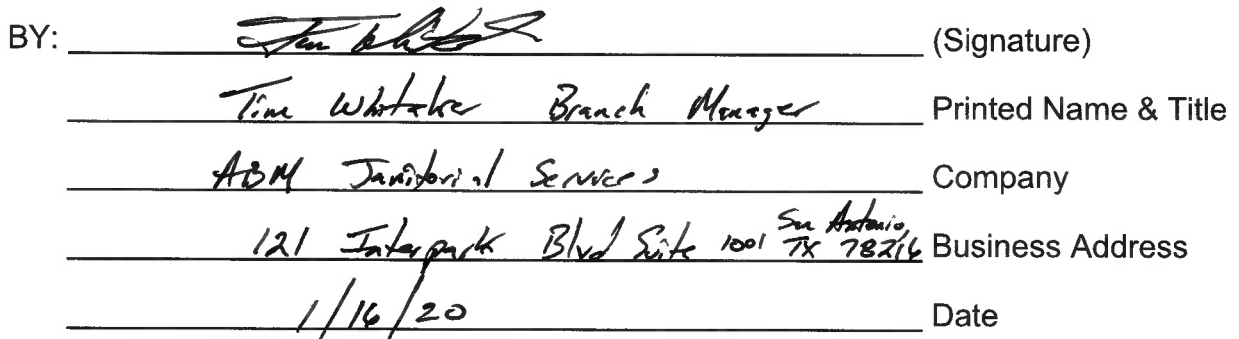 BY: Tim Whitaker (Signature)
Tim Whitaker Branch Manager Printed Name & Title
ABM Janitorial Services Company
121 Interpark Blvd Suite 1001 San Antonio, TX 78216 Business Address
1/16/20 Date